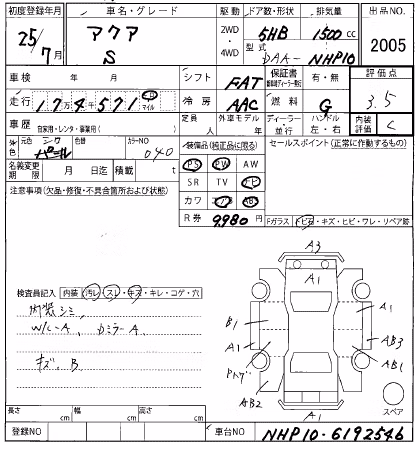 初度登録年月 車名・グレード 駆動 ドア数・形状 排気量 出品NO.
25/7月 アクア S 2WD・4WD 5HB 1500cc 2005
型式 DAA- NHP10
車検 年 月 シフト FAT 保証書 有・無 評価点
走行 17万4千571 キロ マイル 冷房 AAC 燃料 G 3.5
車歴 自家用・レンタ・事業用( ) 定員 人 外車モデル 年 ディーラー・並行 ハンドル 左・右 内装評価 C
外色 元色 シロ パール 色替 カラーNO 040 装備品(純正品に限る) セールスポイント(正常に作動するもの)
名義変更期限 月 日迄 積載 t PS PW AW
注意事項(欠品・修復・不具合箇所および状態) SR TV ナビ
カワ エアB ABS
R券 9,980 円 Fガラス トビ石・キズ・ヒビ・ワレ・リペア跡
A3
A1
検査員記入 内装(汚レ・スレ・キズ・キレ・コゲ・穴
内装シミ
W/C-A カミラーA
B1
A1
A1
AB3
キズ、B
Pトゲ
AB1
AB2
A1
スペア
長さ cm 幅 cm 高さ cm
登録NO 車台NO NHP10-6192546